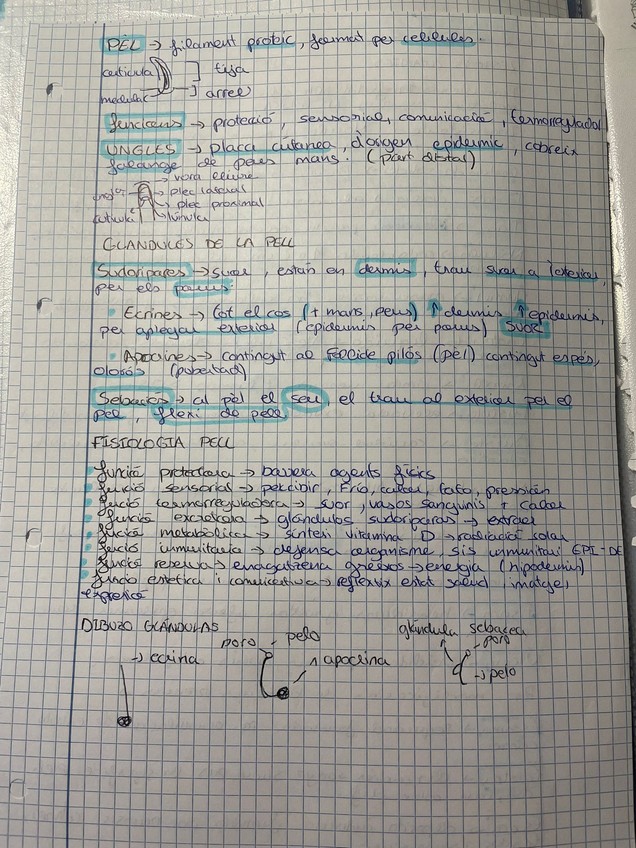 PÈL → filament proteic, format per cèl·lules.
cuticula ] tija
medul·la ] arrel
funcions → protecció, sensorial, comunicació, termorreguladora
UNGLES → placa cútanea, d'origen epidermic, cobreix
falange de peus mans. (part distal)
→ vora lliure
→ plec lateral
→ plec proximal
cuticula → lúnula
GLANDULES DE LA PELL
Sudorípares → suor, están en dermis, trau suor a l'exterior,
per els porus.
• Ecrines → tot el cos (+ mans, peus) ↑ dermis ↑ epidermis,
per aplegar exterior (epidermis per porus) SUOR
• Apocrines → contingut al fol·licle pilós (pèl) contingut espés,
olorós (pubertad)
Sebacies → al pèl el seu, el trau al exterior pel el
pel, flexi de pell
FISIOLOGIA PELL
funció protectora → barrera agents físics
funció sensorial → percibir, Frío, calor, tato, pressión
funció termorreguladora → suor, vasos sanguinis + calor
funció excretora → glándulas sudoriparas → extraer
funció metabòlica → síntesi vitamina D → radiació solar
funció inmunitaria → defensa organisme, sis inmunitari EPI-DE
funció reserva → enmagatzena greixos → energia (hipodermis)
funció estetica i comunicativa → reflexix estat salud, imatge,
expresió
DIBUZO GLÁNDULAS
→ ecrina
poro pelo
apocrina
glándula sebacea
poro
→ pelo